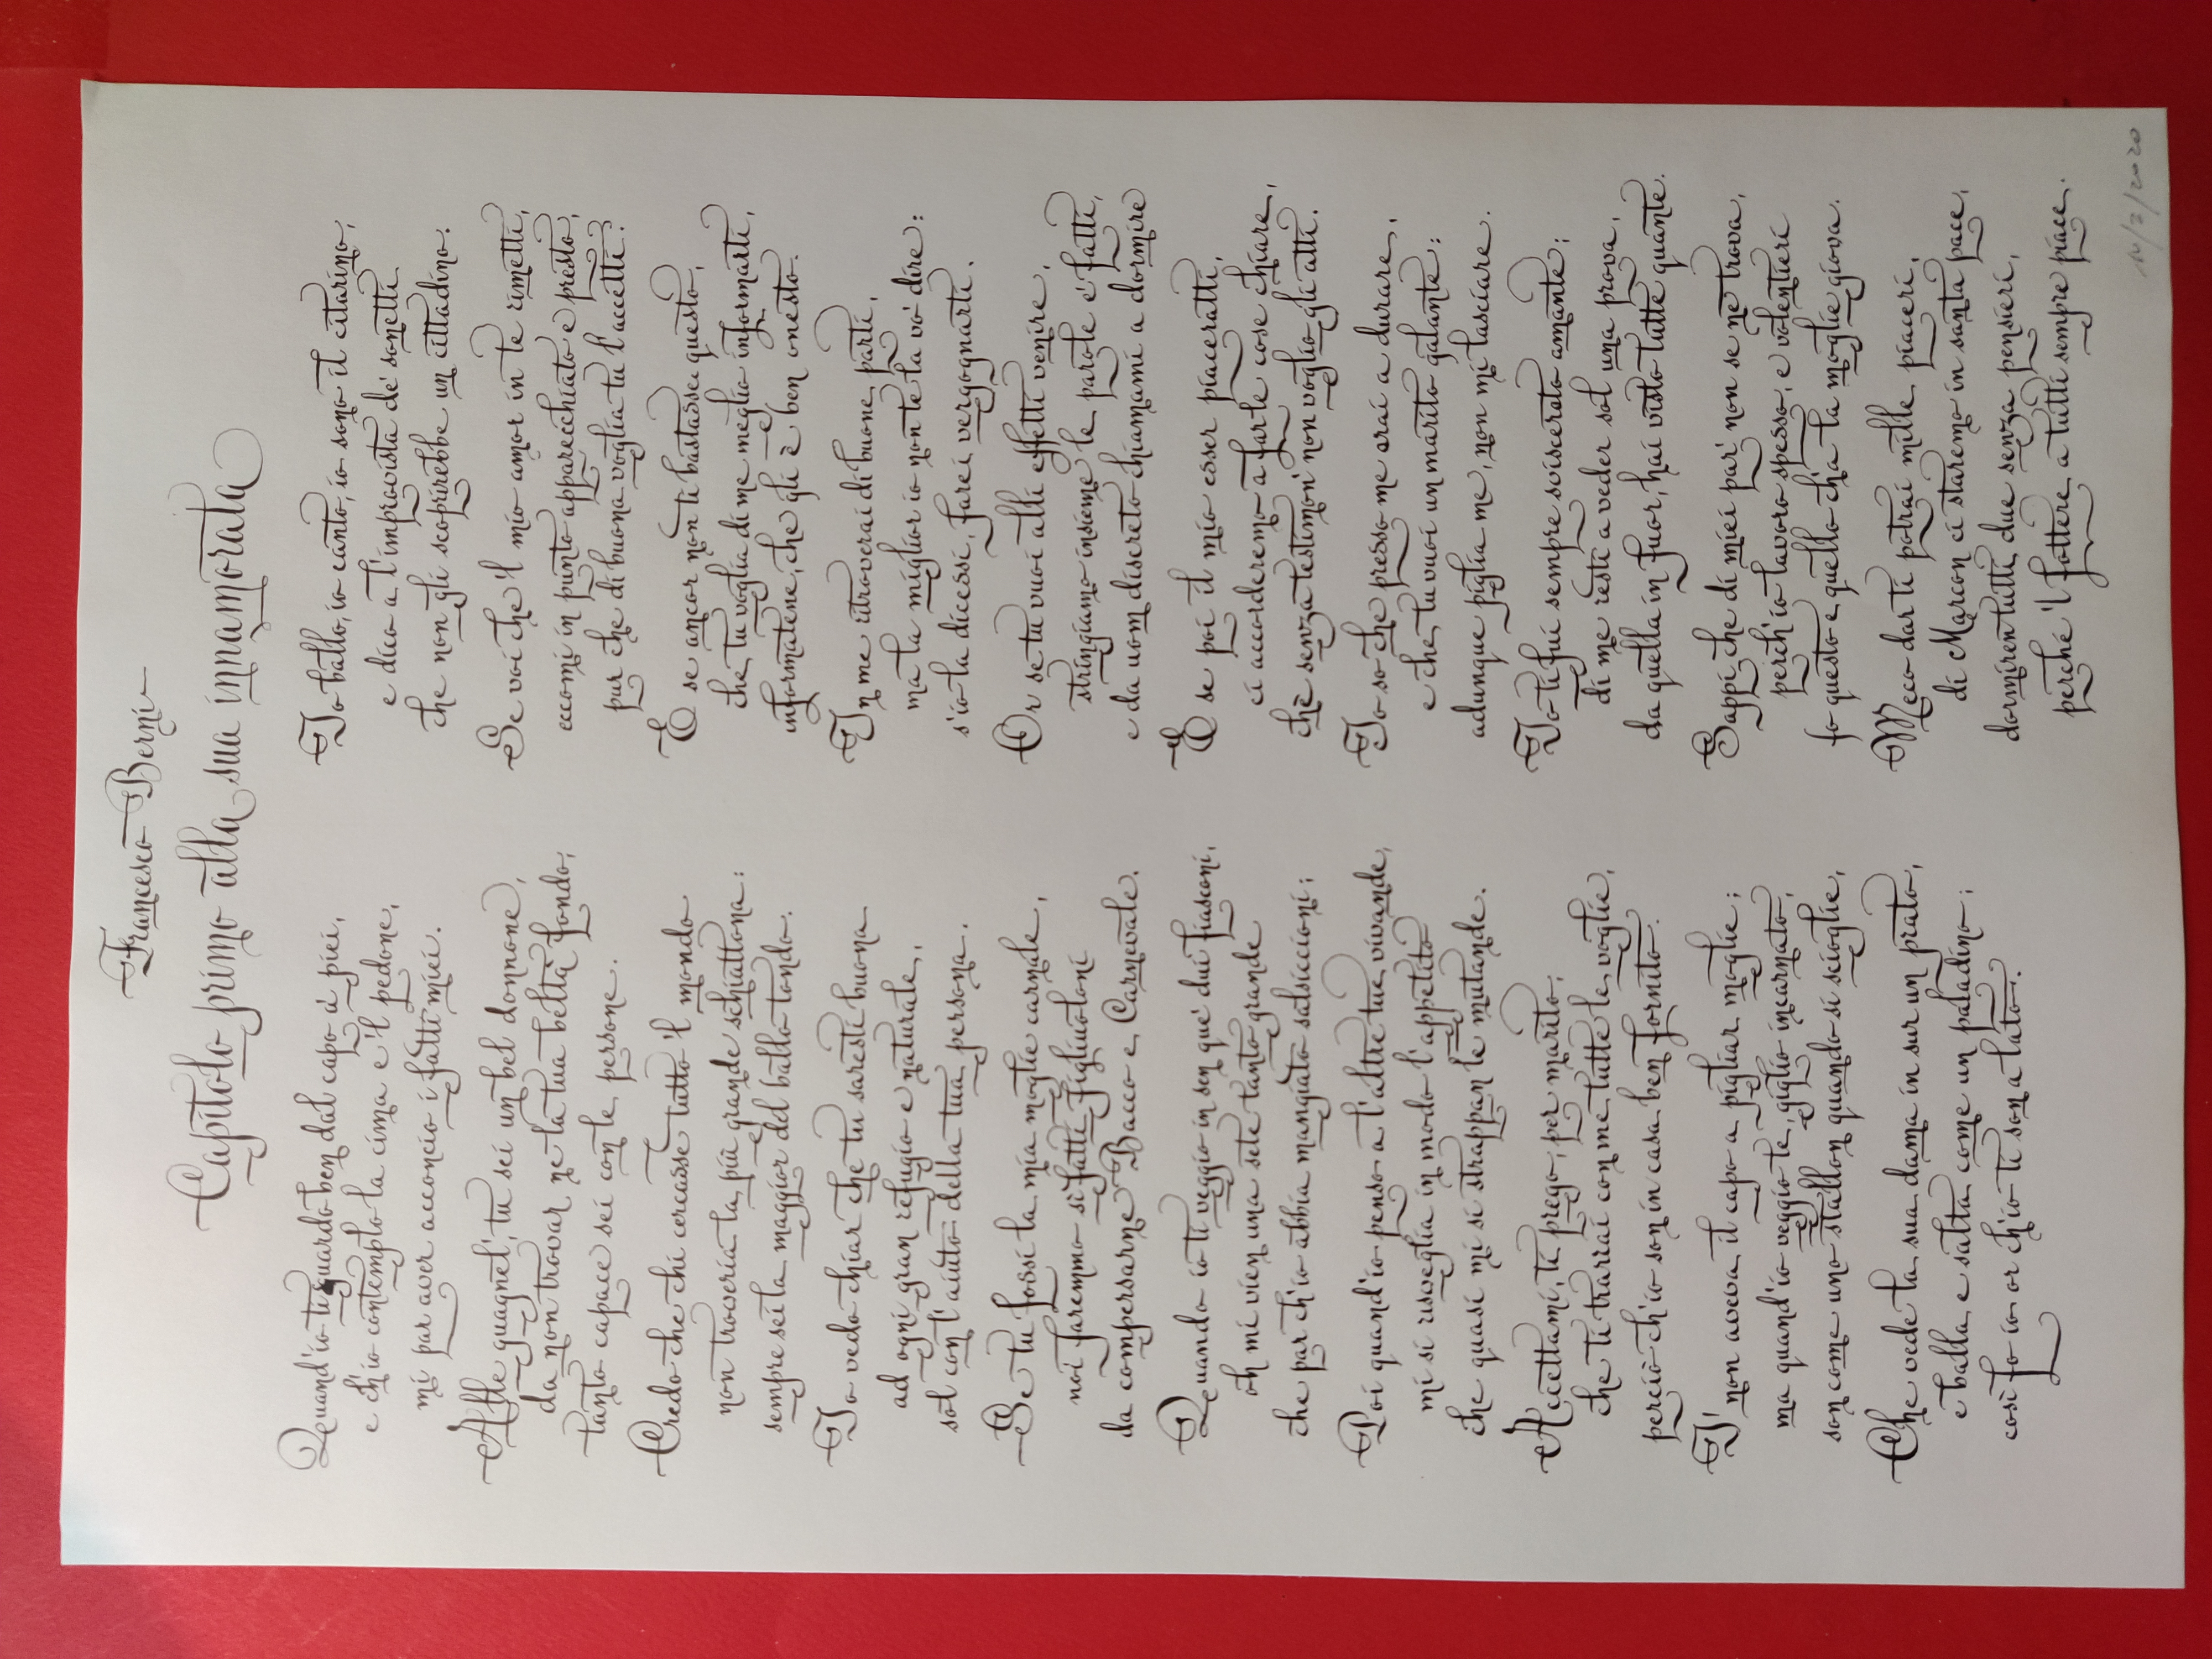 Francesco Berni
Capitolo primo alla sua innamorata
Quand'io ti guardo ben dal capo a' piei,
e ch'io contemplo la cima e 'l pedone,
mi par aver acconcio i fatti miei.
Alle guagnel, tu sei un bel donnone,
da non trovar ne la tua beltà fondo,
tanto capace sei con le persone.
Credo che chi cercasse tutto 'l mondo
non troveria la più grande schiattona:
sempre sei la maggior del ballo tondo.
Io vedo chiar che tu saresti buona
ad ogni gran refugio e naturale,
sol con l'aiuto della tua persona.
Se tu fossi la mia moglie carnale,
noi faremmo sì fatti figliuoloni
da compensarne Bacco e Carnevale.
Quando io ti veggio in sen que' dui fiasconi,
oh mi vien una sete tanto grande
che par ch'io abbia mangiato salsiccioni;
Poi quand'io penso a l'altre tue vivande,
mi si risveglia in modo l'appetito
che quasi mi si strappan le mutande.
Accettami, ti prego, per marito,
che ti trarrai con me tutte le voglie,
perciò ch'io son in casa ben fornito.
I' non aveva il capo a pigliar moglie;
ma quand'io veggio te, giglio incarnato,
son come uno stallon quando si scioglie,
Che vede la sua dama in sur un prato,
e balla e salta come un paladino;
così fo io or ch'io ti son a lato.
Io ballo, io canto, io sono il citarino,
e dico a l'improvista de' sonetti
che non gli scoprirebbe un cittadino.
Se voi che 'l mio amor in te rimetti,
eccomi in punto apparecchiato e presto,
pur che di buona voglia tu l'accetti.
E se ancor non ti bastasse questo,
che tu voglia di me meglio informarti,
informatene, che gli è ben onesto.
In me ritroverai di buone parti,
ma la miglior io non te la vo' dire:
s'io la dicessi, farei vergognarti.
Or se tu vuoi alli effetti venire,
stringiamo insieme le parole e' fatti,
e da uom discreto chiamami a dormire
E se poi il mio esser piaceratti,
ci accorderemo a farle cose chiare,
ché senza testimon' non voglio gli atti.
Io so che presso me arai a durare,
e che tu vuoi un marito galante;
adunque piglia me, non mi lasciare.
Io ti fui sempre sviscerato amante;
di me resti a veder sol una prova,
da quella in fuor, hai visto tutte quante.
Sappi che di miei par' non se ne trova,
perch'io lavoro spesso, e volentieri
fo questo e quello ch'a la moglie giova.
Meco darti potrai mille piaceri,
di Marcon ci staremo in santa pace,
dormiren tutti due senza pensieri,
perché 'l fottere a tutti sempre piace.
10/3/2020